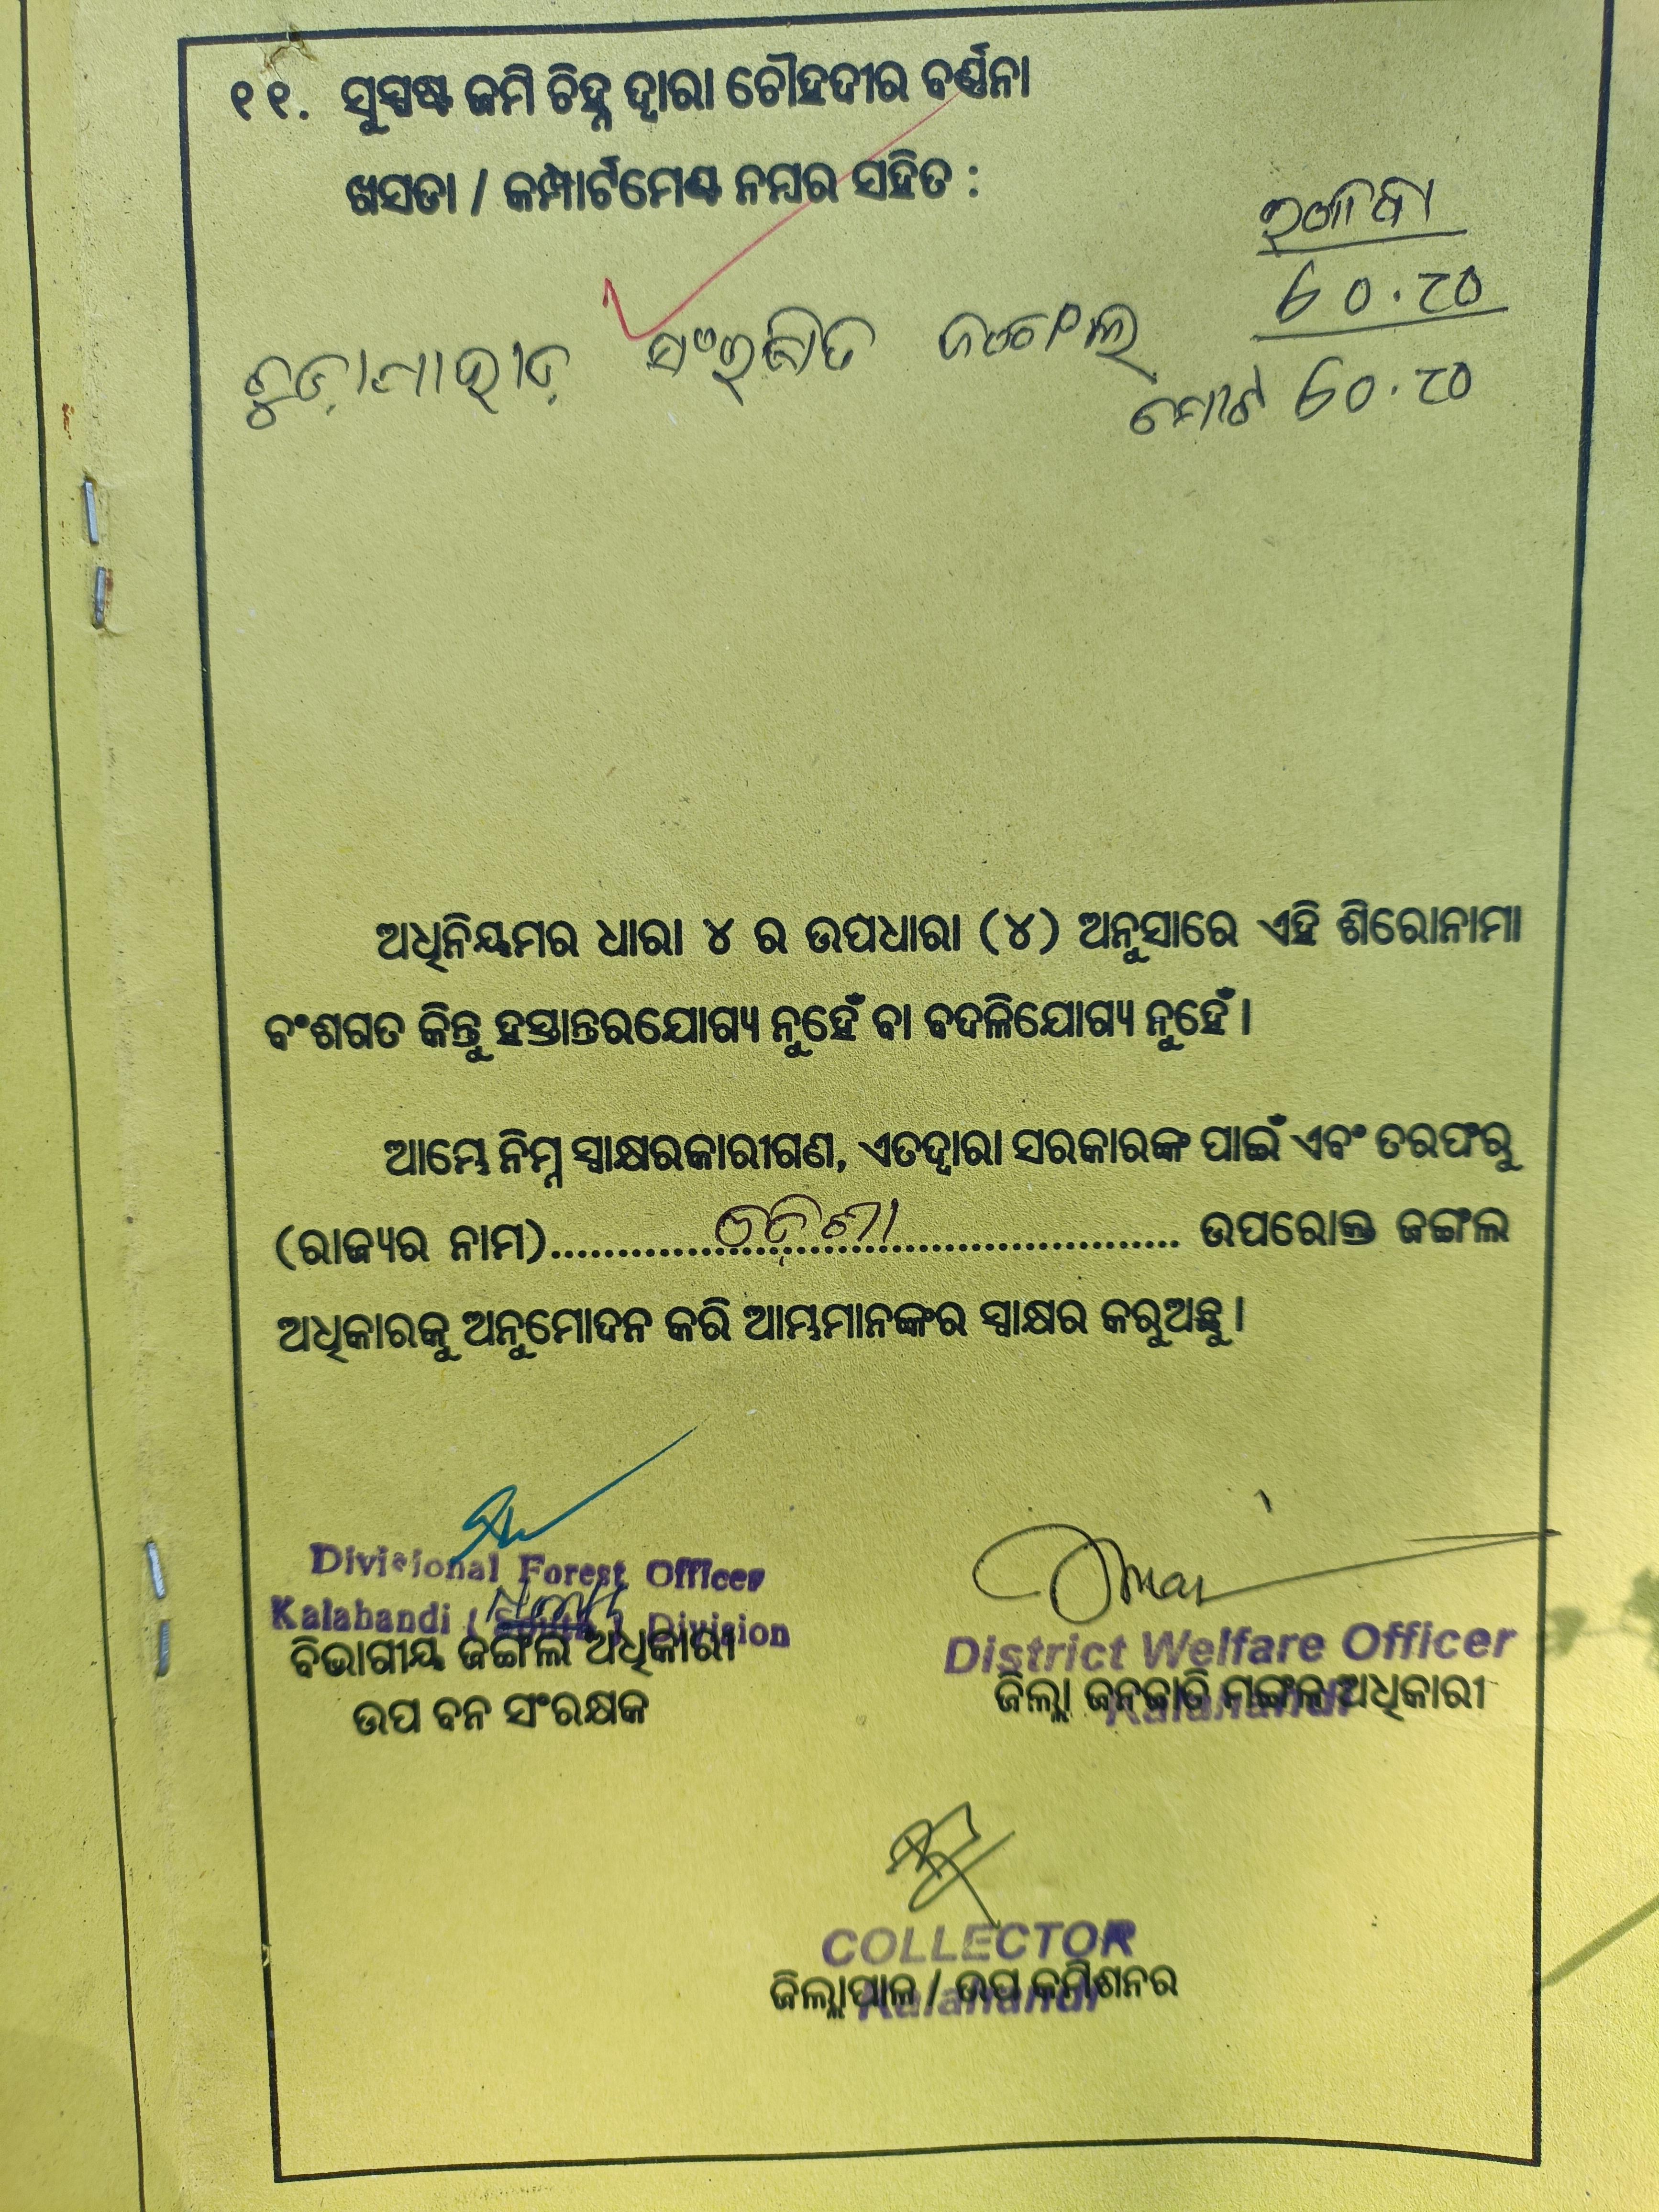 ୧୧. ସୁସ୍ପଷ୍ଟ ଜମି ଚିହ୍ନ ଦ୍ୱାରା ଚୌହଦୀର ବର୍ଣ୍ଣନା
ଖସଡା / କମ୍ପାର୍ଟମେଣ୍ଟ ନମ୍ବର ସହିତ :
୬୦.୮୦
ସଂରକ୍ଷିତ ଜଙ୍ଗଲ
ମୋଟ ୬୦.୮୦
ଅଧିନିୟମର ଧାରା ୪ ର ଉପଧାରା (୪) ଅନୁସାରେ ଏହି ଶିରୋନାମା
ବଂଶଗତ କିନ୍ତୁ ହସ୍ତାନ୍ତରଯୋଗ୍ୟ ନୁହେଁ ବା ବଦଳିଯୋଗ୍ୟ ନୁହେଁ।
ଆମ୍ଭେ ନିମ୍ନ ସ୍ୱାକ୍ଷରକାରୀଗଣ, ଏତଦ୍ୱାରା ସରକାରଙ୍କ ପାଇଁ ଏବଂ ତରଫରୁ
(ରାଜ୍ୟର ନାମ)..........ଓଡ଼ିଶା.......... ଉପରୋକ୍ତ ଜଙ୍ଗଲ
ଅଧିକାରକୁ ଅନୁମୋଦନ କରି ଆମ୍ଭମାନଙ୍କର ସ୍ୱାକ୍ଷର କରୁଅଛୁ।
Divisional Forest Officer
Kalahandi (South) Division
ବିଭାଗୀୟ ଜଙ୍ଗଲ ଅଧିକାରୀ
ଉପ ବନ ସଂରକ୍ଷକ
District Welfare Officer
Kalahandi
ଜିଲ୍ଲା ଜନଜାତି ମଙ୍ଗଳ ଅଧିକାରୀ
COLLECTOR
Kalahandi
ଜିଲ୍ଲାପାଳ / ଉପ କମିଶନର